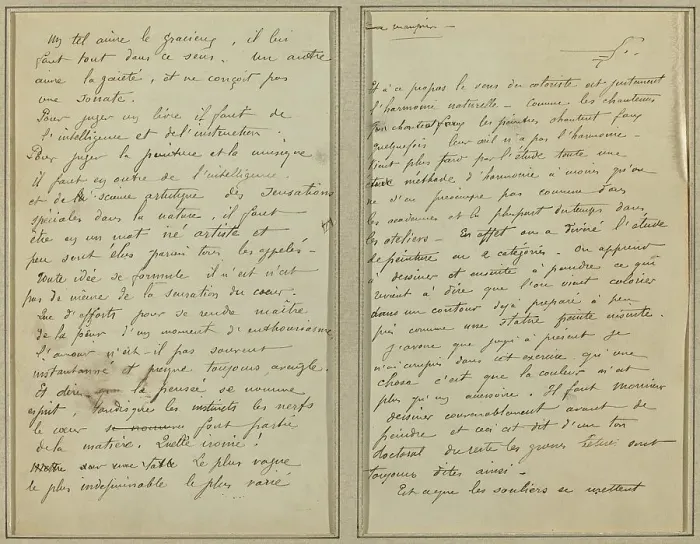 Un tel aime le gracieux, il lui
faut tout dans ce sens. Un autre
aime la gaieté, et ne conçoit pas
une sonate.
Pour juger un livre il faut de
l'intelligence et de l'instruction.
Pour juger la peinture et la musique
il faut en outre de l'intelligence
et de la science artistique des sensations
spéciales dans la nature, il faut
être en un mot né artiste et
peu sont élus parmi tous les appelés.
Toute idée se formule il n'en est
pas de même de la sensation du coeur.
Que d'efforts pour se rendre maître
de la peur d'un moment d'enthousiasme
L'amour n'est-il pas souvent
instantané et presque toujours aveugle.
Et dire que la pensée se nomme
esprit, tandisque les instincts les nerfs
le coeur font partie
de la matière. Quelle ironie!
sur une table Le plus vague
le plus indéfinissable le plus varié
Et à ce propos le sens du coloriste est justement
l'harmonie naturelle — Comme les chanteurs
les peintres chantent faux
quelquefois leur oeil n'a pas l'harmonie —
Vient plus tard par l'étude toute une
méthode d'harmonie à moins qu'on
ne s'en préoccupe pas comme dans
les académies et la plupart du temps dans
les ateliers — En effet on a divisé l'étude
de peinture en 2 catégories. On apprend
à dessiner et ensuite à peindre ce qui
revient à dire que l'on vient colorier
dans un contour déjà préparé à peu
près comme une statue peinte ensuite.
J'avoue que jusqu'à présent je
n'ai compris dans cet exercice qu'une
chose c'est que la couleur n'est
plus qu'un accessoire. Il faut Monsieur
dessiner convenablement avant de
peindre et ceci est dit d'un ton
doctoral du reste les grosses bêtises sont
toujours dites ainsi —
Est ce que les souliers se mettent